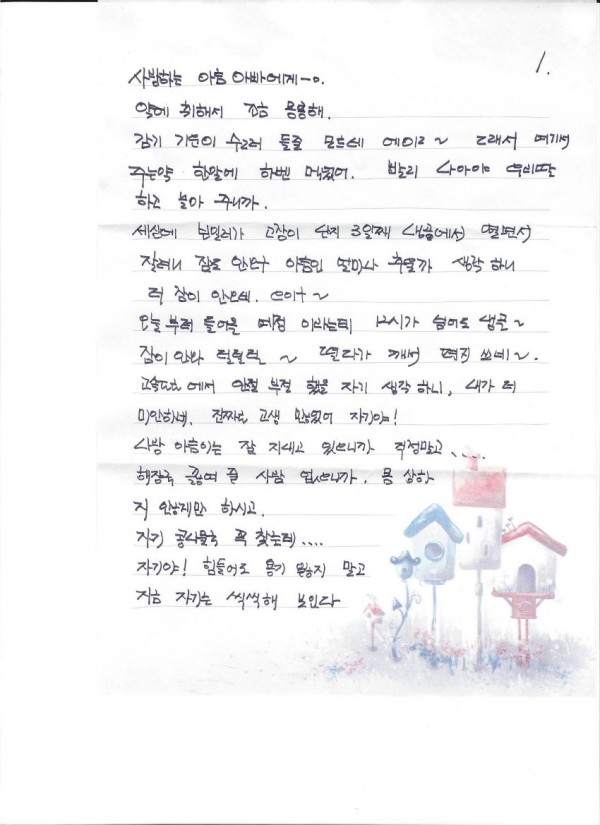 1.
사랑하는 아름 아빠에게-ㅇ.
약에 취해서 조금 몽롱해.
감기 기운이 수그러 들줄 모르네 에이ㄹ~ 그래서 여기서
주는약 한알에 하벤 먹었어. 빨리 나아야 우리딸
하고 놀아 주니까.
세상에 보일러가 고장이 난지 3일째 냉골에서 떨면서
잘려니 잠도 안오구 아름인 얼마나 추울까 생각 하니
더 잠이 안오네.
오늘 부터 들어올 예정 이라는데 12시가 넘어도 냉골~
잠이 안와 덜덜덜 ~ 떤다가 깨서 편지 쓰네~.
고속도로 에서 안절 부절 했을 자기 생각 하니, 내가 더
미안하네. 진짜로 고생 많았어 자기야!
사랑 아름이는 잘 지내고 있으니까 걱정말고....
해장국 끓여 줄 사람 없으니까. 몸 상하
지 않게만 하시고.
자기 콩나물국 꼭 찾는데....
자기야! 힘들어도 용기 잃지 말고
지금 자기는 씩씩해 보인다